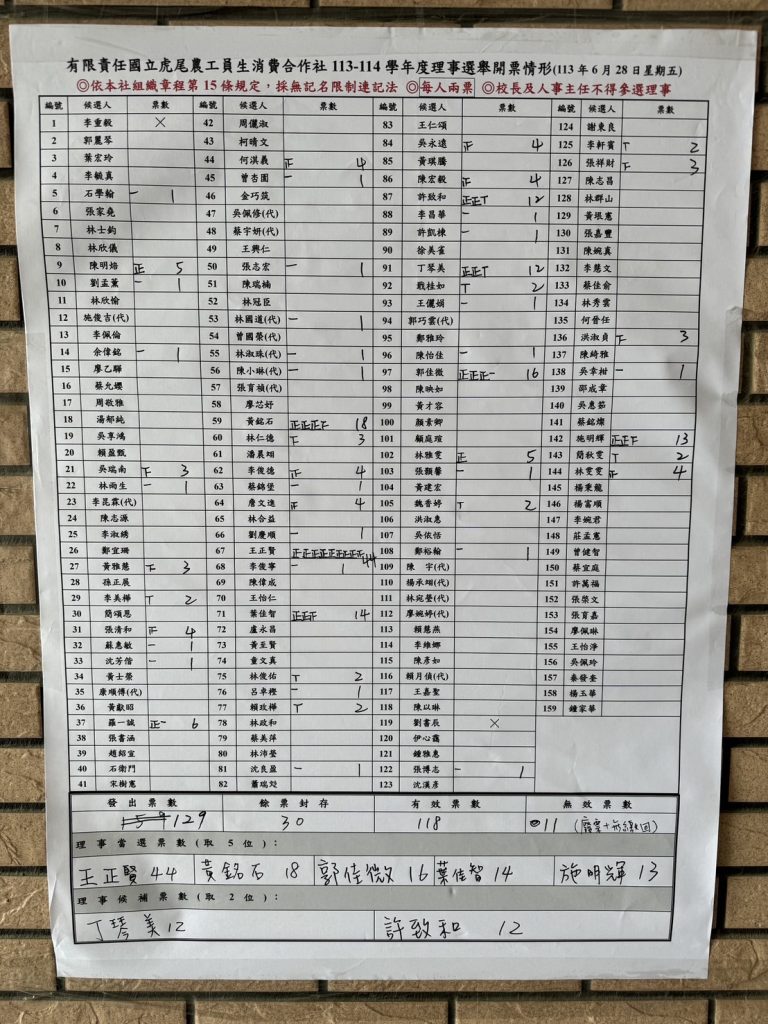 有限責任國立虎尾農工員生消費合作社 113-114 學年度理事選舉開票情形(113 年 6 月 28 日星期五)
◎依本社組織章程第 15 條規定，採無記名限制連記法 ◎每人兩票 ◎校長及人事主任不得參選理事
編號 候選人 票數
1 李重毅 ×
2 郭麗琴
3 葉宏玲
4 李毓真
5 石學翰 一 1
6 張家堯
7 林士鈞
8 林欣儀
9 陳明焙 正 5
10 劉孟薰 一 1
11 林欣愉
12 施俊吉(代)
13 李佩倫
14 余偉銘 一 1
15 廖乙驊
16 蔡允纓
17 周敬雅
18 湯郁純
19 吳享鴻
20 賴盈甄
21 吳瑞南 下 3
22 林雨生 一 1
23 李昆霖(代)
24 陳志源
25 李淑綉
26 鄭宜珊
27 黃雅慧 下 3
28 孫正展
29 李美樺 T 2
30 簡頌恩
31 張清和 正 4
32 蘇惠敏 一 1
33 沈芳偕 一 1
34 黃士榮
35 康順傳(代)
36 黃獻昭
37 羅一誠 正一 6
38 張書涵
39 趙紹宣
40 石衛門
41 宋樹憲
編號 候選人 票數
42 周儷淑
43 柯晴文
44 何淇義 正 4
45 曾杏園 一 1
46 金巧筑
47 吳佩修(代)
48 蔡宇妍(代)
49 王興仁
50 張志宏 一 1
51 陳瑞楠
52 林冠臣
53 林國道(代) 一 1
54 曾國榮(代)
55 林淑珠(代) 一 1
56 陳小琳(代) 一 1
57 張育禎(代)
58 廖芯妤
59 黃銘石 正正正下 18
60 林仁德 下 3
61 潘晨翊
62 李俊德 正 4
63 蔡錦堡 一 1
64 詹文進 正 4
65 林合益
66 劉慶順 一 1
67 王正賢 正正正正正正正正正 44
68 李俊寧 一 1
69 陳偉成
70 王怡仁
71 葉佳智 正正正 14
72 盧永昌
73 黃至賢
74 童文真
75 林俊佑 T 2
76 呂卓樫 一 1
77 賴政樺 T 2
78 林政和
79 蔡美萍
80 林沛瑩
81 沈良盈 一 1
82 蕭瑞彣
編號 候選人 票數
83 王仁頌
84 吳永遠 正 4
85 黃琪騰
86 陳宏毅 正 4
87 許致和 正正T 12
88 李昌華 一 1
89 許凱棟 一 1
90 徐美雀
91 丁琴美 正正T 12
92 戢桂如 T 2
93 王儷娟 一 1
94 郭巧雲(代)
95 鄭雅玲
96 陳怡佳 一 1
97 郭佳微 正正正一 16
98 陳映如
99 黃才容
100 顏素卿
101 顧庭瑄
102 林雅雯 正 5
103 張顥馨 一 1
104 黃建宏
105 魏香婷 T 2
106 洪淑惠
107 吳依恬
108 鄭裕翰 一 1
109 陳 宇(代)
110 楊承翊(代)
111 林宛瑩(代)
112 廖婉婷(代)
113 賴慧燕
114 李維娜
115 陳彥如
116 賴月偵(代)
117 王嘉聖
118 陳以琳
119 劉書辰 ×
120 伊心靄
121 鍾雅惠
122 張博志 一 1
123 沈漢彥
編號 候選人 票數
124 謝東良
125 李軒賓 T 2
126 張祥財 下 3
127 陳志昌
128 林群山
129 黃垠憲
130 張嘉豐
131 陳婉真
132 李慧文
133 蔡佳俞
134 林秀雲
135 何晉任
136 洪淑貞 下 3
137 陳綺雅
138 吳幸柑 一 1
139 邵成章
140 吳惠茹
141 蔡銘燦
142 施明輝 正正下 13
143 簡秋雯 T 2
144 林雯雯 正 4
145 楊秉龍
146 楊富順
147 李婉君
148 莊孟憲
149 曾健智
150 蔡宜庭
151 許萬福
152 張榮文
153 張育嘉
154 廖佩琳
155 王怡淨
156 吳佩玲
157 秦發奎
158 楊玉華
159 鍾家華
發出票數 餘票封存 有效票數 無效票數
159 129 30 118 11 (廢票+未繳回)
理事當選票數(取 5 位)：
王正賢 44 黃銘石 18 郭佳微 16 葉佳智 14 施明輝 13
理事候補票數(取 2 位)：
丁琴美 12 許致和 12